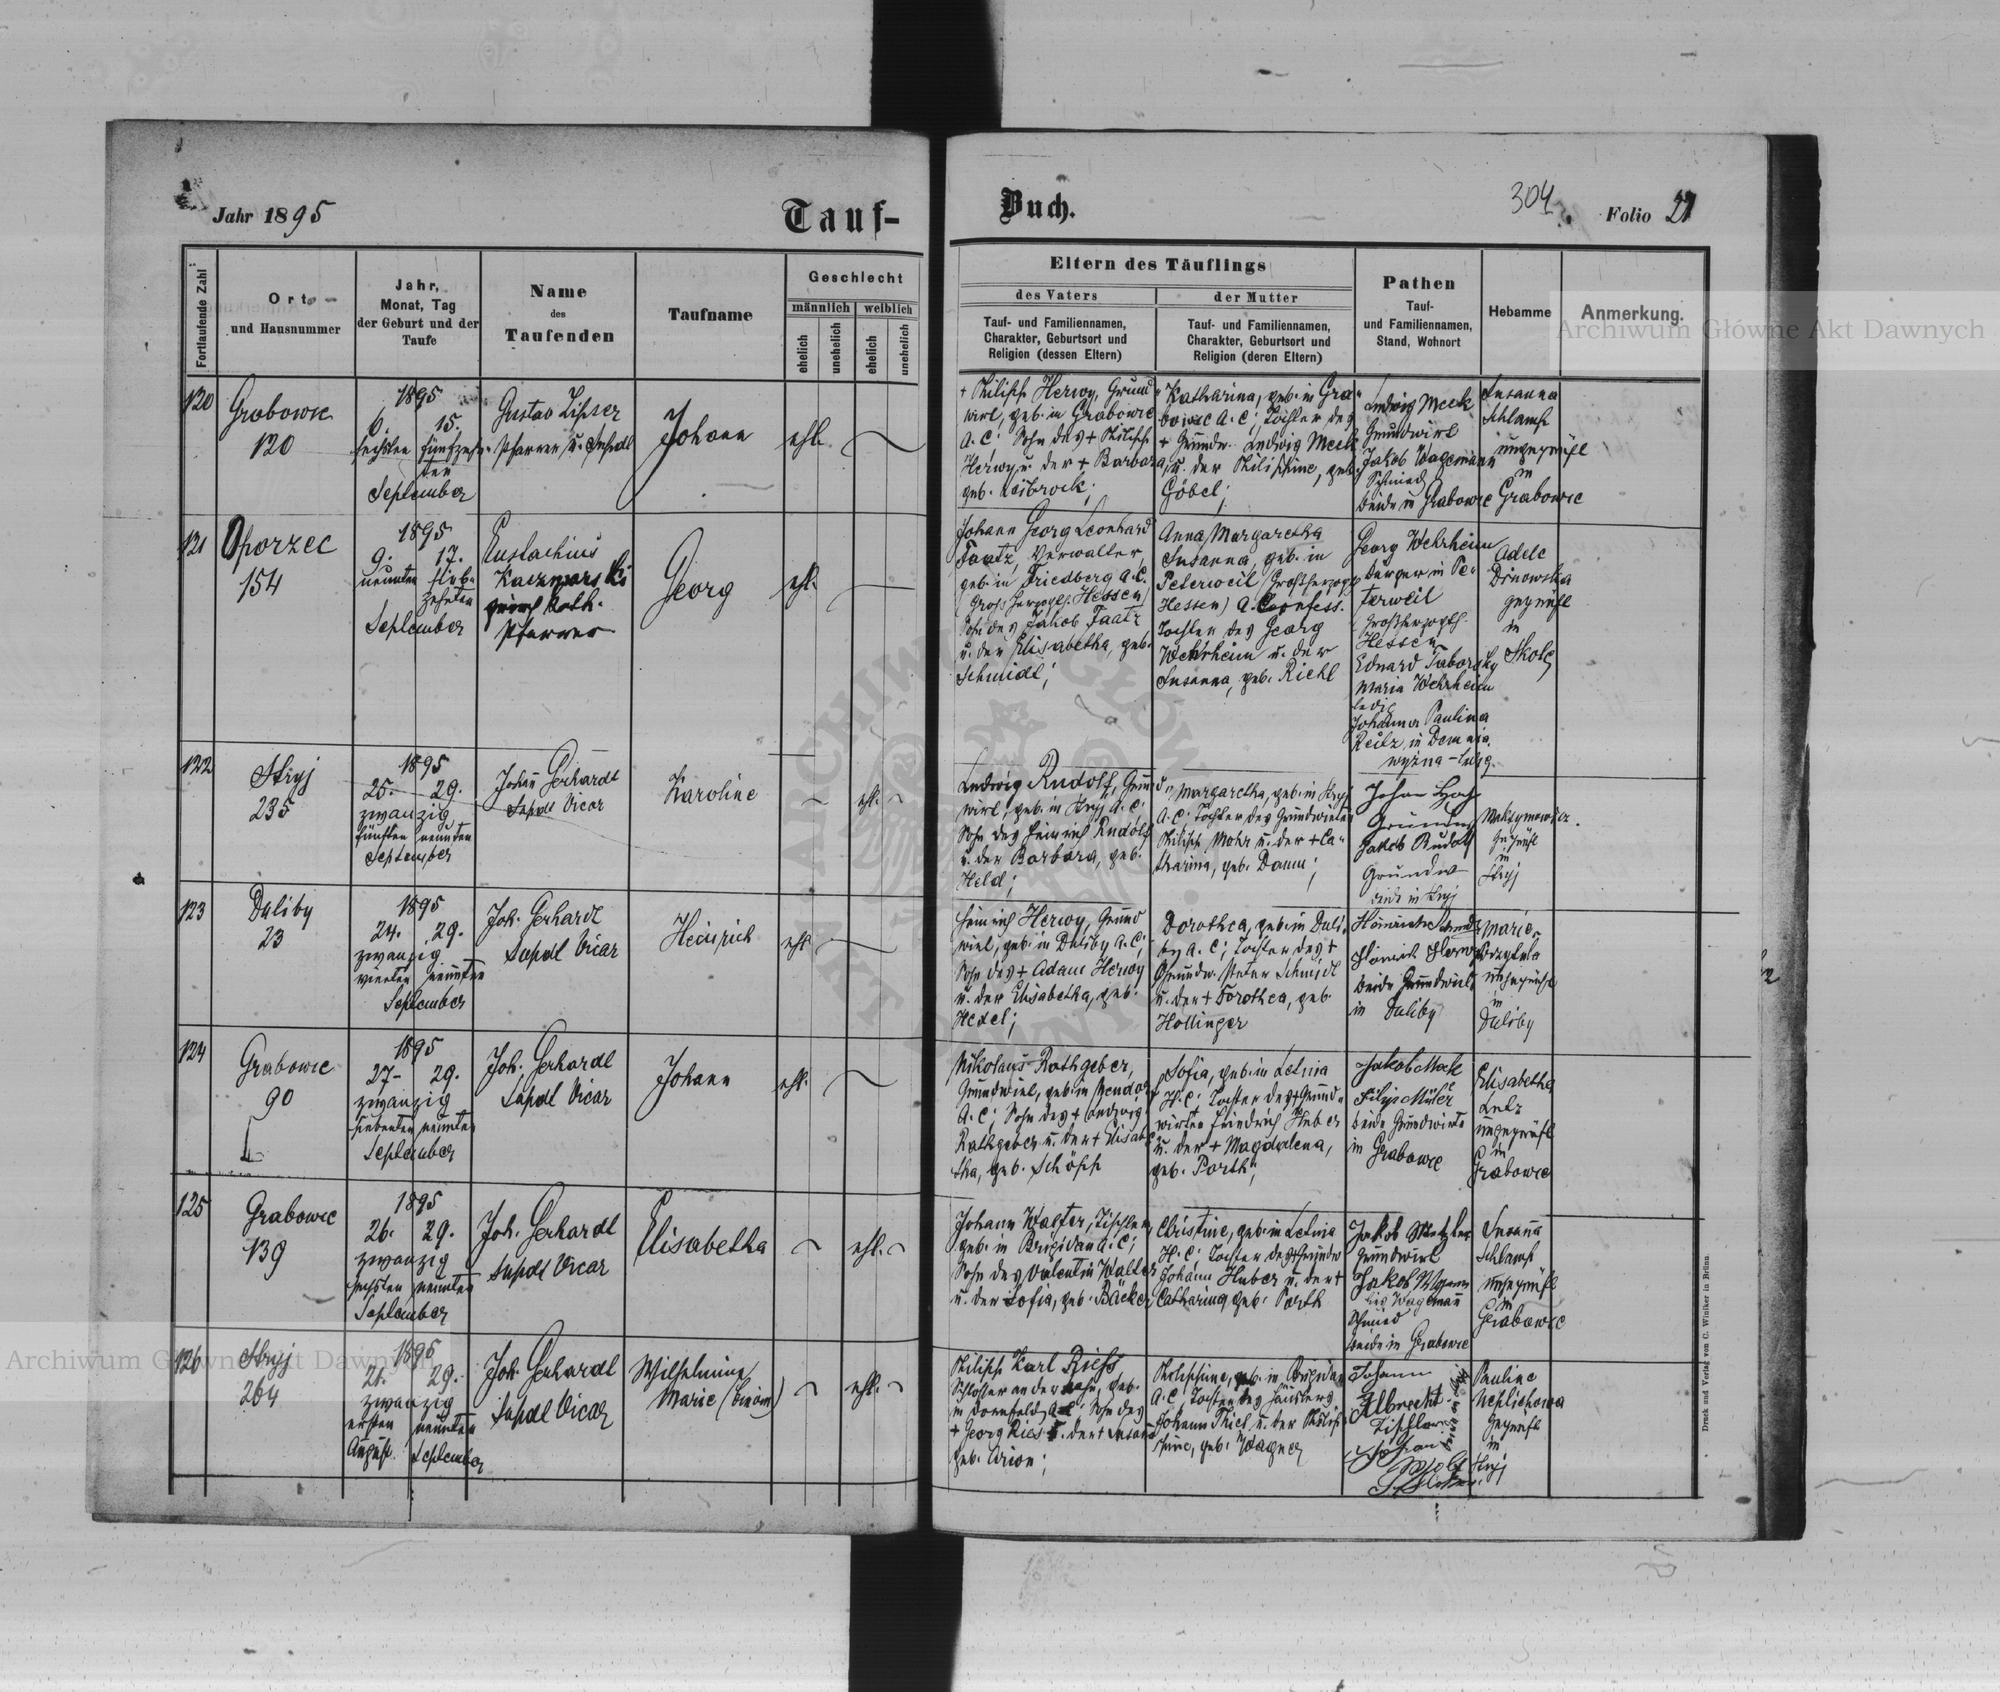 Jahr 1895
Tauf-
Buch.
304
Folio 21
Fortlaufende Zahl
Ort
und Hausnummer
Jahr,
Monat, Tag
der Geburt und der
Taufe
Name
des
Taufenden
Taufname
Geschlecht
männlich
weiblich
ehelich
unehelich
ehelich
unehelich
Eltern des Täuflings
des Vaters
der Mutter
Tauf- und Familiennamen,
Charakter, Geburtsort und
Religion (dessen Eltern)
Tauf- und Familiennamen,
Charakter, Geburtsort und
Religion (deren Eltern)
Pathen
Tauf-
und Familiennamen,
Stand, Wohnort
Hebamme
Anmerkung.
Archiwum Główne Akt Dawnych
120
Grabowce
120
1895
6. 15.
sechsten fünfzehn-
ten
September
Gustav
Pfarrer u.
Johann
ehl.
+ Philipp Herwy, Grund
wirt, geb. in Grabowce
A.C. Sohn des + Philipp
Herwy u. der + Barbara,
geb. Leibrock;
Katharina, geb. in Gra-
bowce A.C.; Tochter des
+ Grundw. Ludwig Meck
u. der Philippine, geb.
Göbel;
Ludwig Meck
Grundwirt
Jakob Wagemann
Schmied
beide in Grabowce
Susanna
Schlamp
ungeprüft
in
Grabowce
121
Oporzec
154
1895
9. 17.
neunten sieb-
zehnten
September
Eustachius
Kaczmarski
griech. kath.
Pfarrer
Georg
ehl.
Johann Georg Leonhard
Faatz, Verwalter
geb. in Friedberg A.C.
(Grossherzogl. Hessen)
Sohn des Jakob Faatz
u. der Elisabetha, geb.
Schmidt;
Anna Margaretha
Susanna, geb. in
Peterweil (Großherzogt.
Hessen) A. Confess.
Tochter des Georg
Wehrheim u. der
Susanna, geb. Riehl
Georg Wehrheim
Bürger in Pe-
terweil
Großherzogth.
Hessen
Eduard Taborsky
Maria Wehrheim
ledig
Johanna Paulina
Reitz in Demnia
wyżna - ledig
Adele
geprüft
in
Skole
122
Stryj
235
1895
25. 29.
zwanzig
fünften neunten
September
Johann Gerhardt
Supdt Vicar
Karoline
ehl.
Ludwig Rudolf, Grund-
wirt, geb. in Stryj A.C.
Sohn des Heinrich Rudolf
u. der Barbara, geb.
Held;
Margaretha, geb. in Stryj
A.C. Tochter des Grundwirten
Philipp Mohr u. der + Ca-
tharina, geb. Damm;
Jakob Rudolf
Grundw
beide in Stryj
Geprüft
in
Stryj
123
Duliby
23
1895
24. 29.
zwanzig
vierten neunten
September
Joh. Gerhardt
Supdt Vicar
Heinrich
ehl.
Heinrich Herwy, Grund
wirt, geb. in Duliby A.C.;
Sohn des + Adam Herwy
u. der Elisabetha, geb.
Hexel;
Dorothea, geb. in Duli-
by A.C.; Tochter des +
Grundw. Peter Schmidt
u. der + Dorothea, geb.
Hollinger
beide Grundwirte
in Duliby
Marie
ungeprüft
in
Duliby
124
Grabowce
90
1895
27. 29.
zwanzig
siebenten neunten
September
Joh. Gerhardt
Supdt Vicar
Johann
ehl.
Nikolaus Rathgeber,
Grundwirt, geb. in
A.C.; Sohn des + Ludwig
Rathgeber u. der + Elisabe-
tha, geb. Schöpp
Sofia, geb. in Letnia
H.C. Tochter des + Grund-
wirten Friedrich Huber
u. der + Magdalena,
geb. Porth;
Jakob Mak
Filip Müller
beide Grundwirte
in Grabowce
Elisabetha
Lutz
ungeprüft
in
Grabowce
125
Grabowce
139
1895
26. 29.
zwanzig
sechsten neunten
September
Joh. Gerhardt
Supdt Vicar
Elisabetha
ehl.
Johann Walter, Tischler,
geb. in Brigidau A.C.;
Sohn des Valentin Walter
u. der Sofia, geb. Bäcker
Christine, geb. in Letnia
H.C. Tochter des + Grundw
Johann Huber u. der +
Catharina, geb. Porth
Jakob Metzler
Grundwirt
Jakob
Wagemann
Schmied
beide in Grabowce
Susanna
Schlamp
ungeprüft
in
Grabowce
126
Stryj
264
1895
21. 29.
zwanzig
ersten neunten
August September
Joh. Gerhardt
Supdt Vicar
Wilhelmine
Marie
ehl.
Philipp Karl Riess
Schlosser an der Bahn, geb.
in Dornfeld, A.C. Sohn des
+ Georg Ries u. der + Susana
geb. Arion;
Philippine, geb. in Brigidau
A.C. Tochter des Häuslers
Johann Kiel u. der Philip-
pine, geb. Wagner
Johann
Albrecht
Tischler
Johann
Pauline
Geprüft
in
Stryj
Druck und Verlag von C. Winiker in Brünn
Archiwum Główne Akt Dawnych